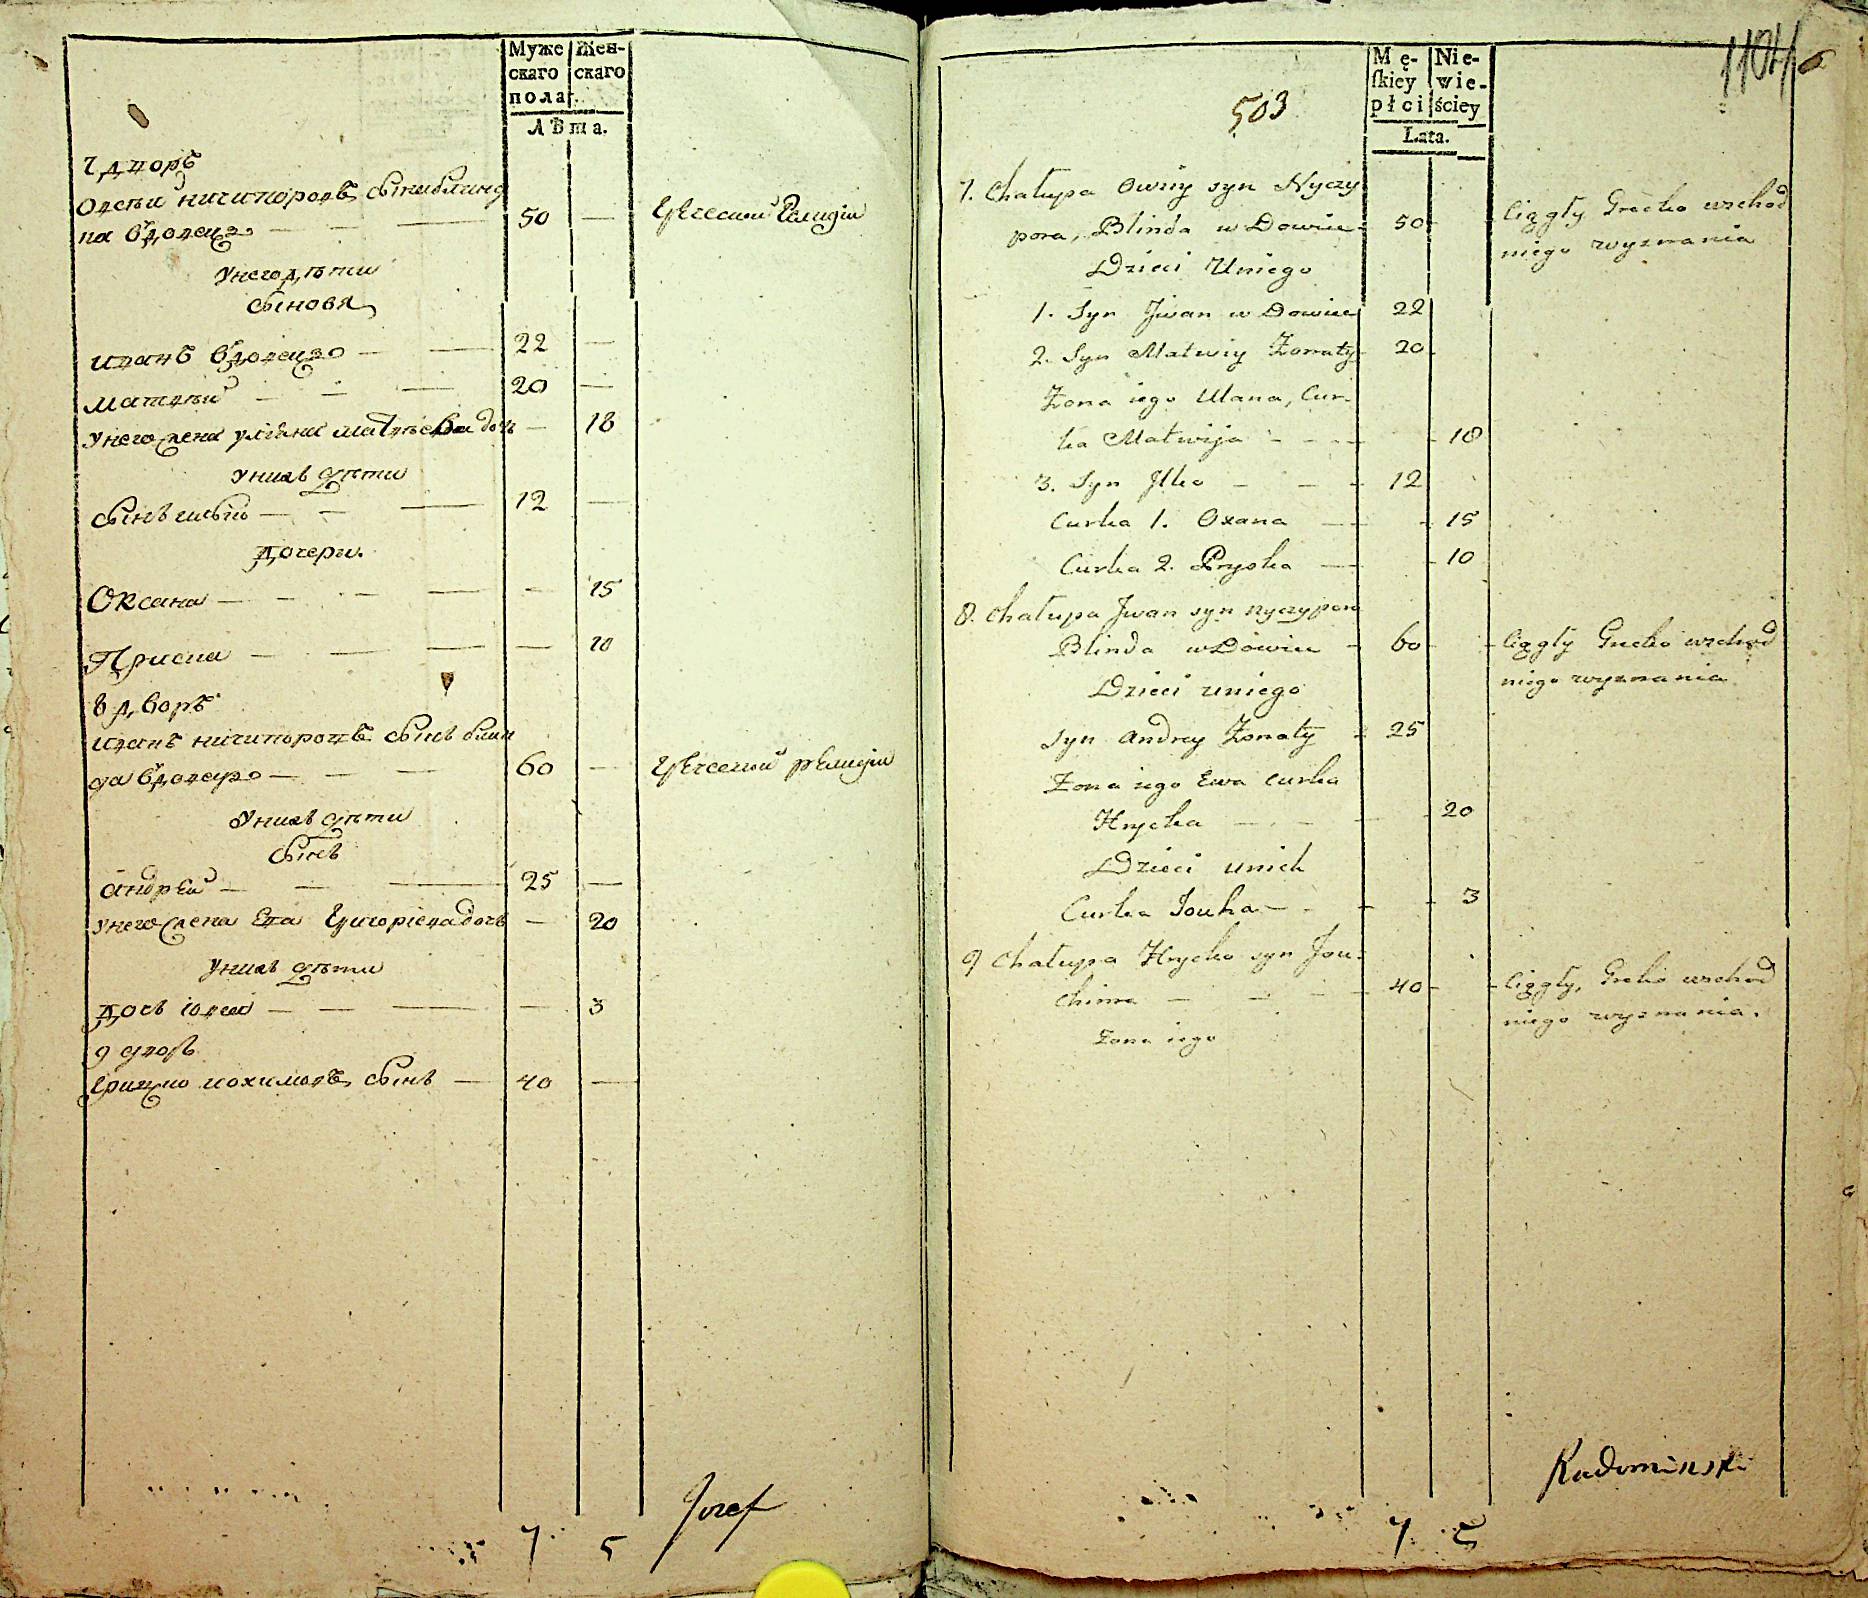 Муже Жен-
скаго скаго
пола.
Лѣта.
7 дворъ
Овсѣй Ничипоровъ сынъ блинд
на вдовецъ — — — 50 —
Унего дѣти
сыновя
иванъ вдовецъ — — 22 —
матвѣй — — — 20 —
унего жена уліяна матвѣева дочь — 18
униxъ дѣти
сынъ илько — — — 12 —
дочери.
Оксана — — — — — 15
Приска — — — — — 10
8 дворъ
иванъ ничипоровъ сынъ блин
да вдовецъ — — — 60 —
Унихъ дѣти
сынъ
андрей — — — 25 —
унего жена Ева Григоріева дочь — 20
унихъ дѣти
дочь — — — — 3
9 дворъ
Грицко иохимовъ сынъ — 40 —
Jozef
7 5
1104
503
Mę- Nie-
ſkiey wie-
płci ściey
Lata.
7. Chałupa Owsiy syn Nyczy
pora, Blinda w Dowiec - 50 - - Ciągły Grecko wschod
niego wyznania
Dzieci Uniego
1. Syn Jwan w Dowiec 22
2. Syn Matwiy Żonaty - 20 -
Żona iego Ulana, Cur-
ka Matwija - - - - - 18
3. Syn Jlko - - - 12
Curka 1. Oxana — - 15
Curka 2. Pryska — - 10
8. Chałupa Jwan syn nyczypora
Blinda w Dowiec - 60 - - Ciągły Grecko wschod
niego wyznania
Dzieci uniego
Syn Andrey Żonaty - 25
Żona iego Ewa curka
Hrycka — - - - - 20
Dzieci unich
Curka Jouha — - - - 3
9 Chałupa Hrycko syn Jou-
chima — - - - 40 - - Ciągły, Grecko wschod
niego wyznania.
Żona iego
Radominski
7 5